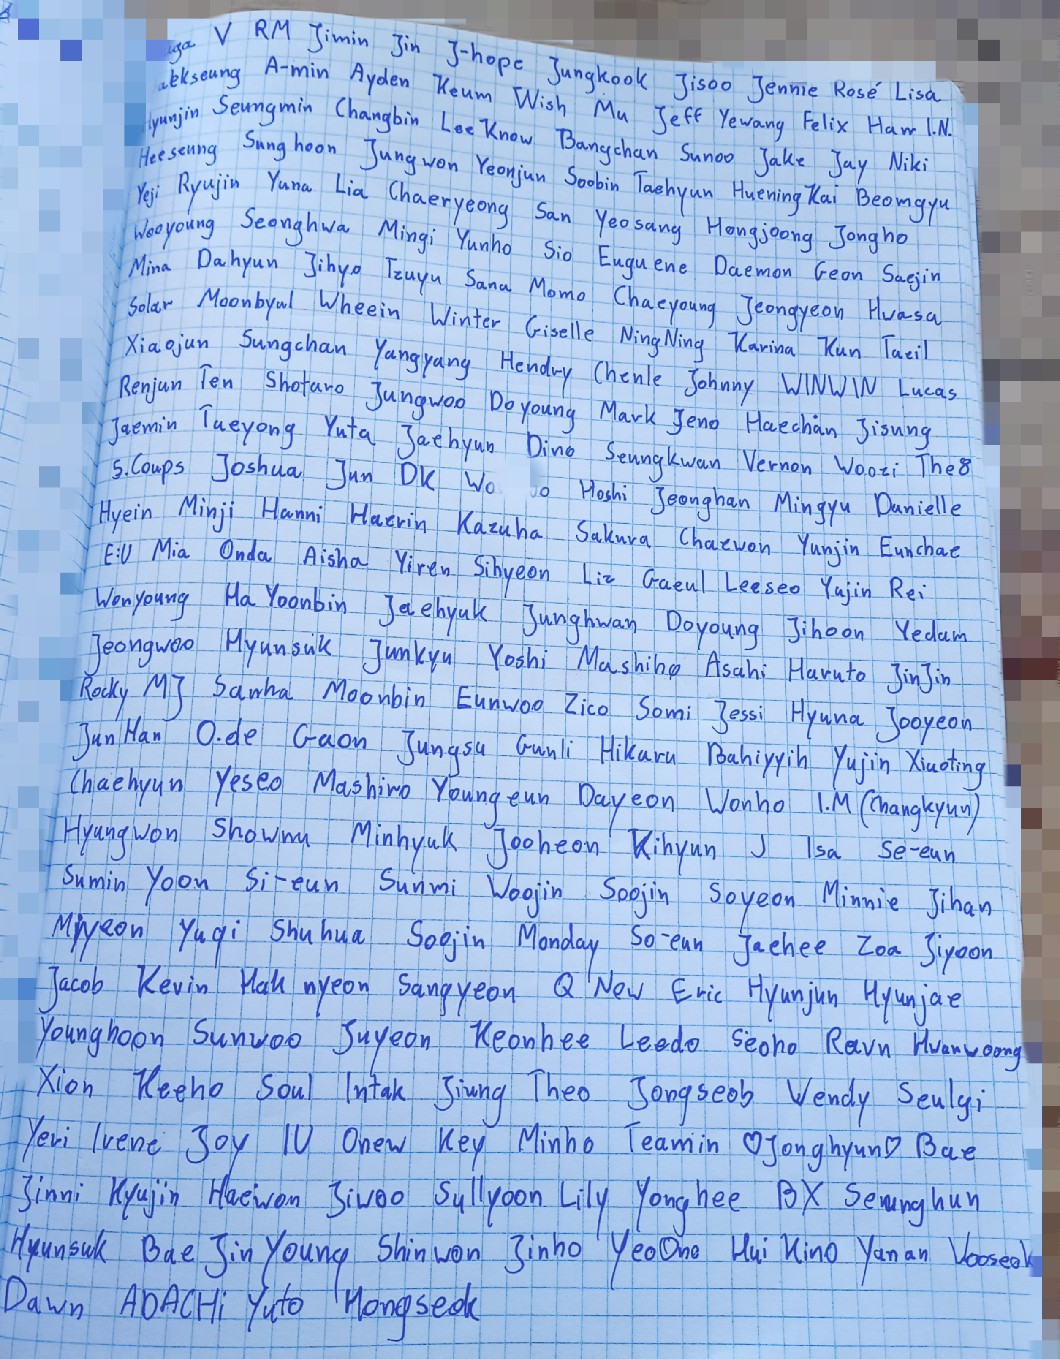 V RM Jimin Jin J-hope Jungkook Jisoo Jennie Rosé Lisa
A-min Ayden Keum Wish Mu Jeff Yewang Felix Han I.N.
Seungmin Changbin Lee Know Bangchan Sunoo Jake Jay Niki
Heeseung Sunghoon Jungwon Yeonjun Soobin Taehyun HueningKai Beomgyu
Yeji Ryujin Yuna Lia Chaeryeong San Yeosang Hongjoong Jongho
Wooyoung Seonghwa Mingi Yunho Sio Euguene Daemon Geon Saejin
Mina Dahyun Jihyo Tzuyu Sana Momo Chaeyoung Jeongyeon Hwasa
Solar Moonbyul Wheein Winter Giselle NingNing Karina Kun Taeil
Xiaojun Sungchan Yangyang Hendry Chenle Johnny WINWIN Lucas
Renjun Ten Shotaro Jungwoo Doyoung Mark Jeno Haechan Jisung
Jaemin Taeyong Yuta Jaehyun Dino Seungkwan Vernon Woozi The8
S.Coups Joshua Jun DK Hoshi Jeonghan Mingyu Danielle
Hyein Minji Hanni Haerin Kazuha Sakura Chaewon Yunjin Eunchae
E:U Mia Onda Aisha Yiren Sihyeon Liz Gaeul Leeseo Yujin Rei
Wonyoung Ha Yoonbin Jaehyuk Junghwan Doyoung Jihoon Yedam
Jeongwoo Hyunsuk Junkyu Yoshi Mashiho Asahi Haruto JinJin
Rocky MJ Sanha Moonbin Eunwoo Zico Somi Jessi Hyuna Jooyeon
Jun Han O.de Gaon Jungsu Gunli Hikaru Bahiyyih Yujin Xiaoting
Chaehyun Yeseo Mashiro Youngeun Dayeon Wonho I.M (Changkyun)
Hyungwon Shownu Minhyuk Jooheon Kihyun J Isa Se-eun
Sumin Yoon Si-eun Sunmi Woojin Soojin Soyeon Minnie Jihan
Miyeon Yuqi Shuhua Soojin Monday So-eun Jaehee Zoa Jiyoon
Jacob Kevin Hak nyeon Sangyeon Q New Eric Hyunjun Hyunjae
Younghoon Sunwoo Juyeon Keonhee Leedo Seoho Ravn Hwanwoong
Xion Keeho Soul Intak Jiung Theo Jongseob Wendy Seulgi
Yeri Irene Joy IU Onew Key Minho Teamin ♡Jonghyun♡ Bae
Jinni Kyujin Haewon Jiwoo Sullyoon Lily Yonghee BX Seunghun
Hyunsuk Bae Jin Young Shinwon Jinho YeoOne Hui Kino Yanan Wooseok
Dawn ADACHi Yuto Hongseok